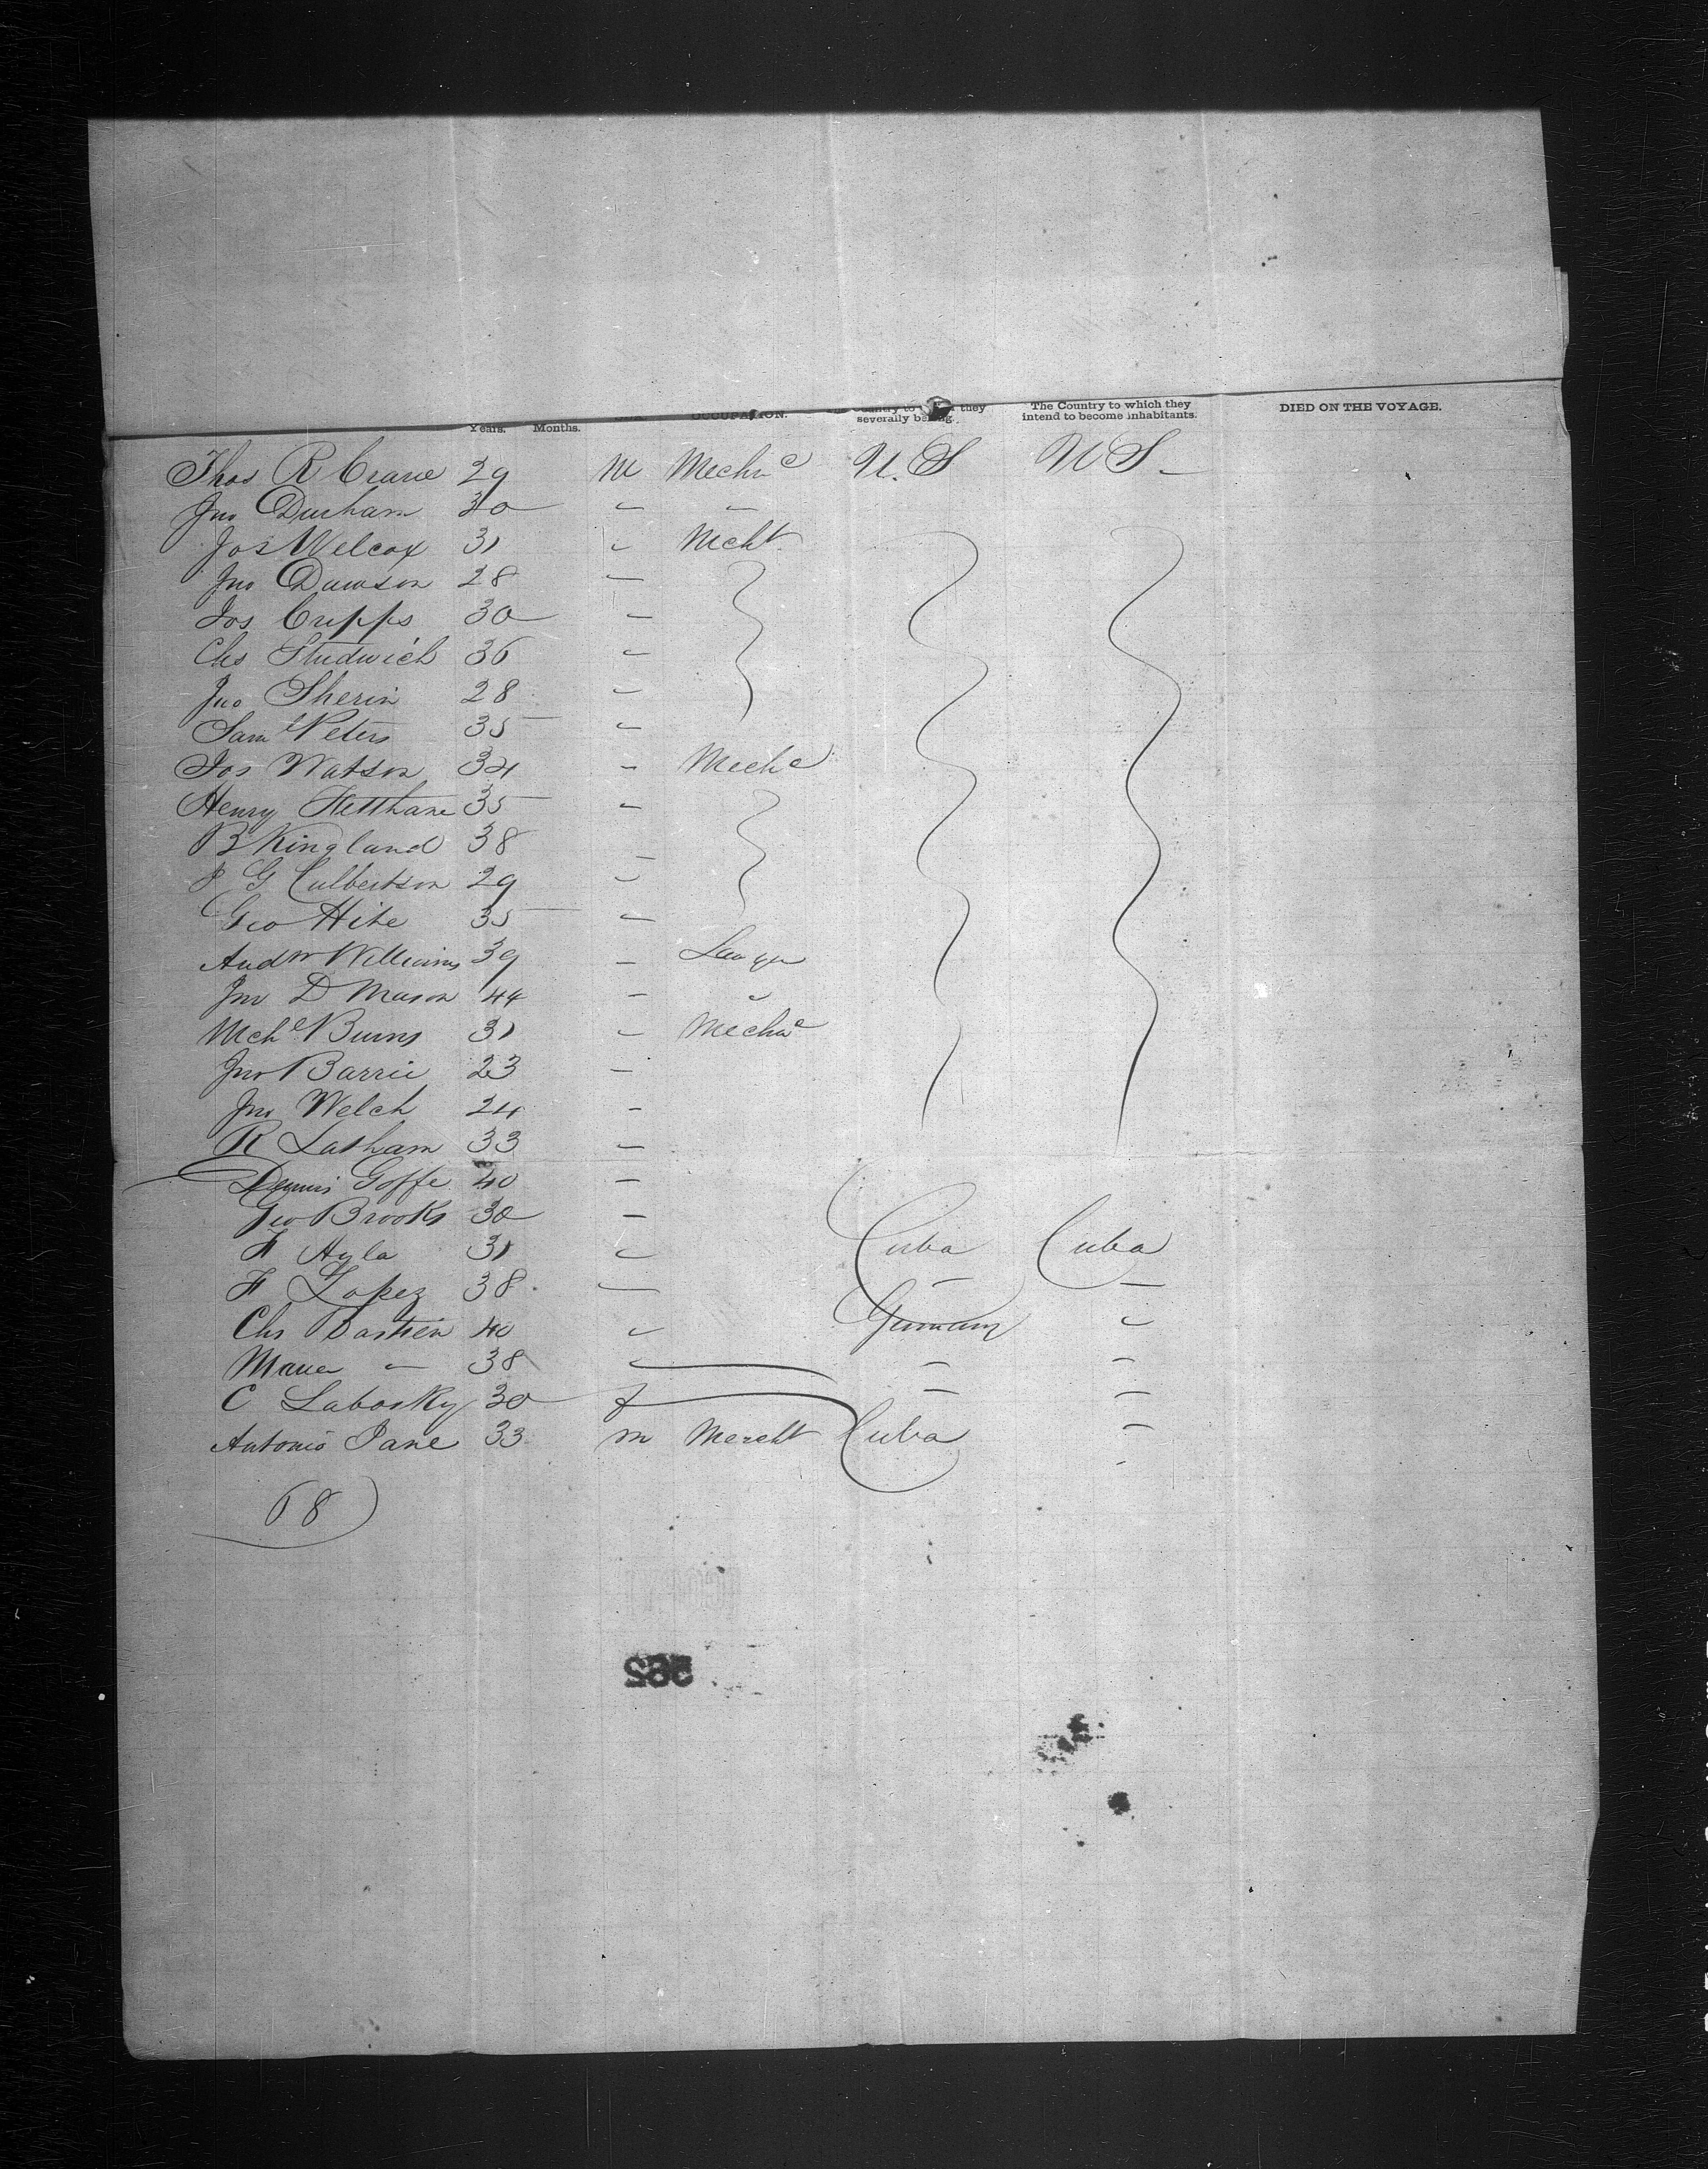 OCCUPATION. Country to they The Country to which they DIED ON THE VOYAGE.
Years. Months. severally belong. intend to become inhabitants.
Thos R Crane 29 M Mechc U.S U S -
Jno Durham 30 " "
Jos Welcox 31 " Mcht
Jno Dawson 28 "
Jos Cripps 30 "
Chs Studwich 36 "
Jno Sherin 28 "
Saml Peters 35 "
Jos Watson 34 " Meche
Henry 35 "
B Kingland 38 "
J G Culbertson 29 "
Geo Hite 35 "
Andw Williams 39 " Lawyer
Jno D Mason 44 " "
Mchl Burns 31 " Mechc
Jno Barrie 23 "
Jno Welch 24 "
R Latham 33 "
Dennis Goffe 40 "
Geo Brooks 30 "
F Ayla 31 " Cuba Cuba
F Lopez 38 " " "
Chs Bastien 40 " Germany "
" 38 " " "
C Labosky 30 f " "
Antonio Jane 33 m Mercht Cuba "
68